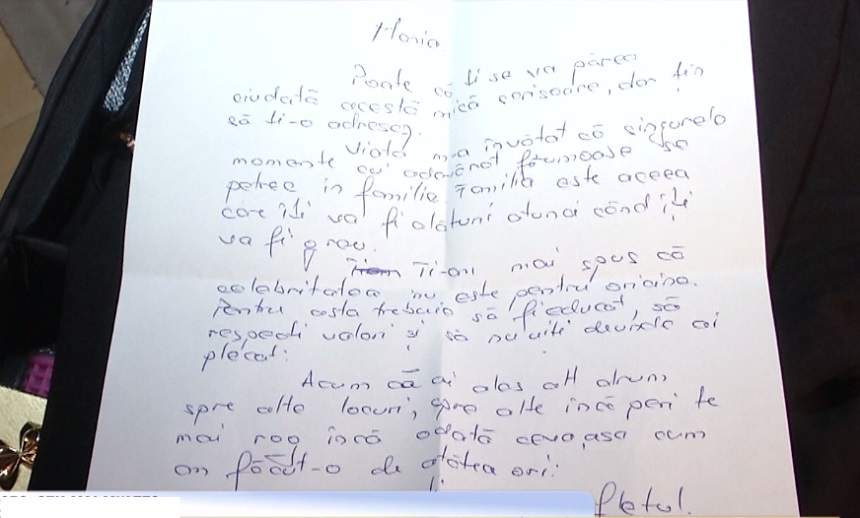 Horia
Poate că ți se va părea
ciudată această mică scrisoare, dar țin
să ți-o adresez.
Viața m-a învățat că singurele
momente cu adevărat frumoase se
petrec în familie. Familia este aceea
care îți va fi alături atunci când îți
va fi greu.
Ți-am mai spus că
celebritatea nu este pentru oricine.
Pentru asta trebuie să fi educat, să
respecți valori și să nu uiți de unde ai
plecat.
Acum că ai ales alt drum
spre alte locuri, spre alte încăperi te
mai rog încă odată ceva, așa cum
am făcut-o de atâtea ori:
fletul.